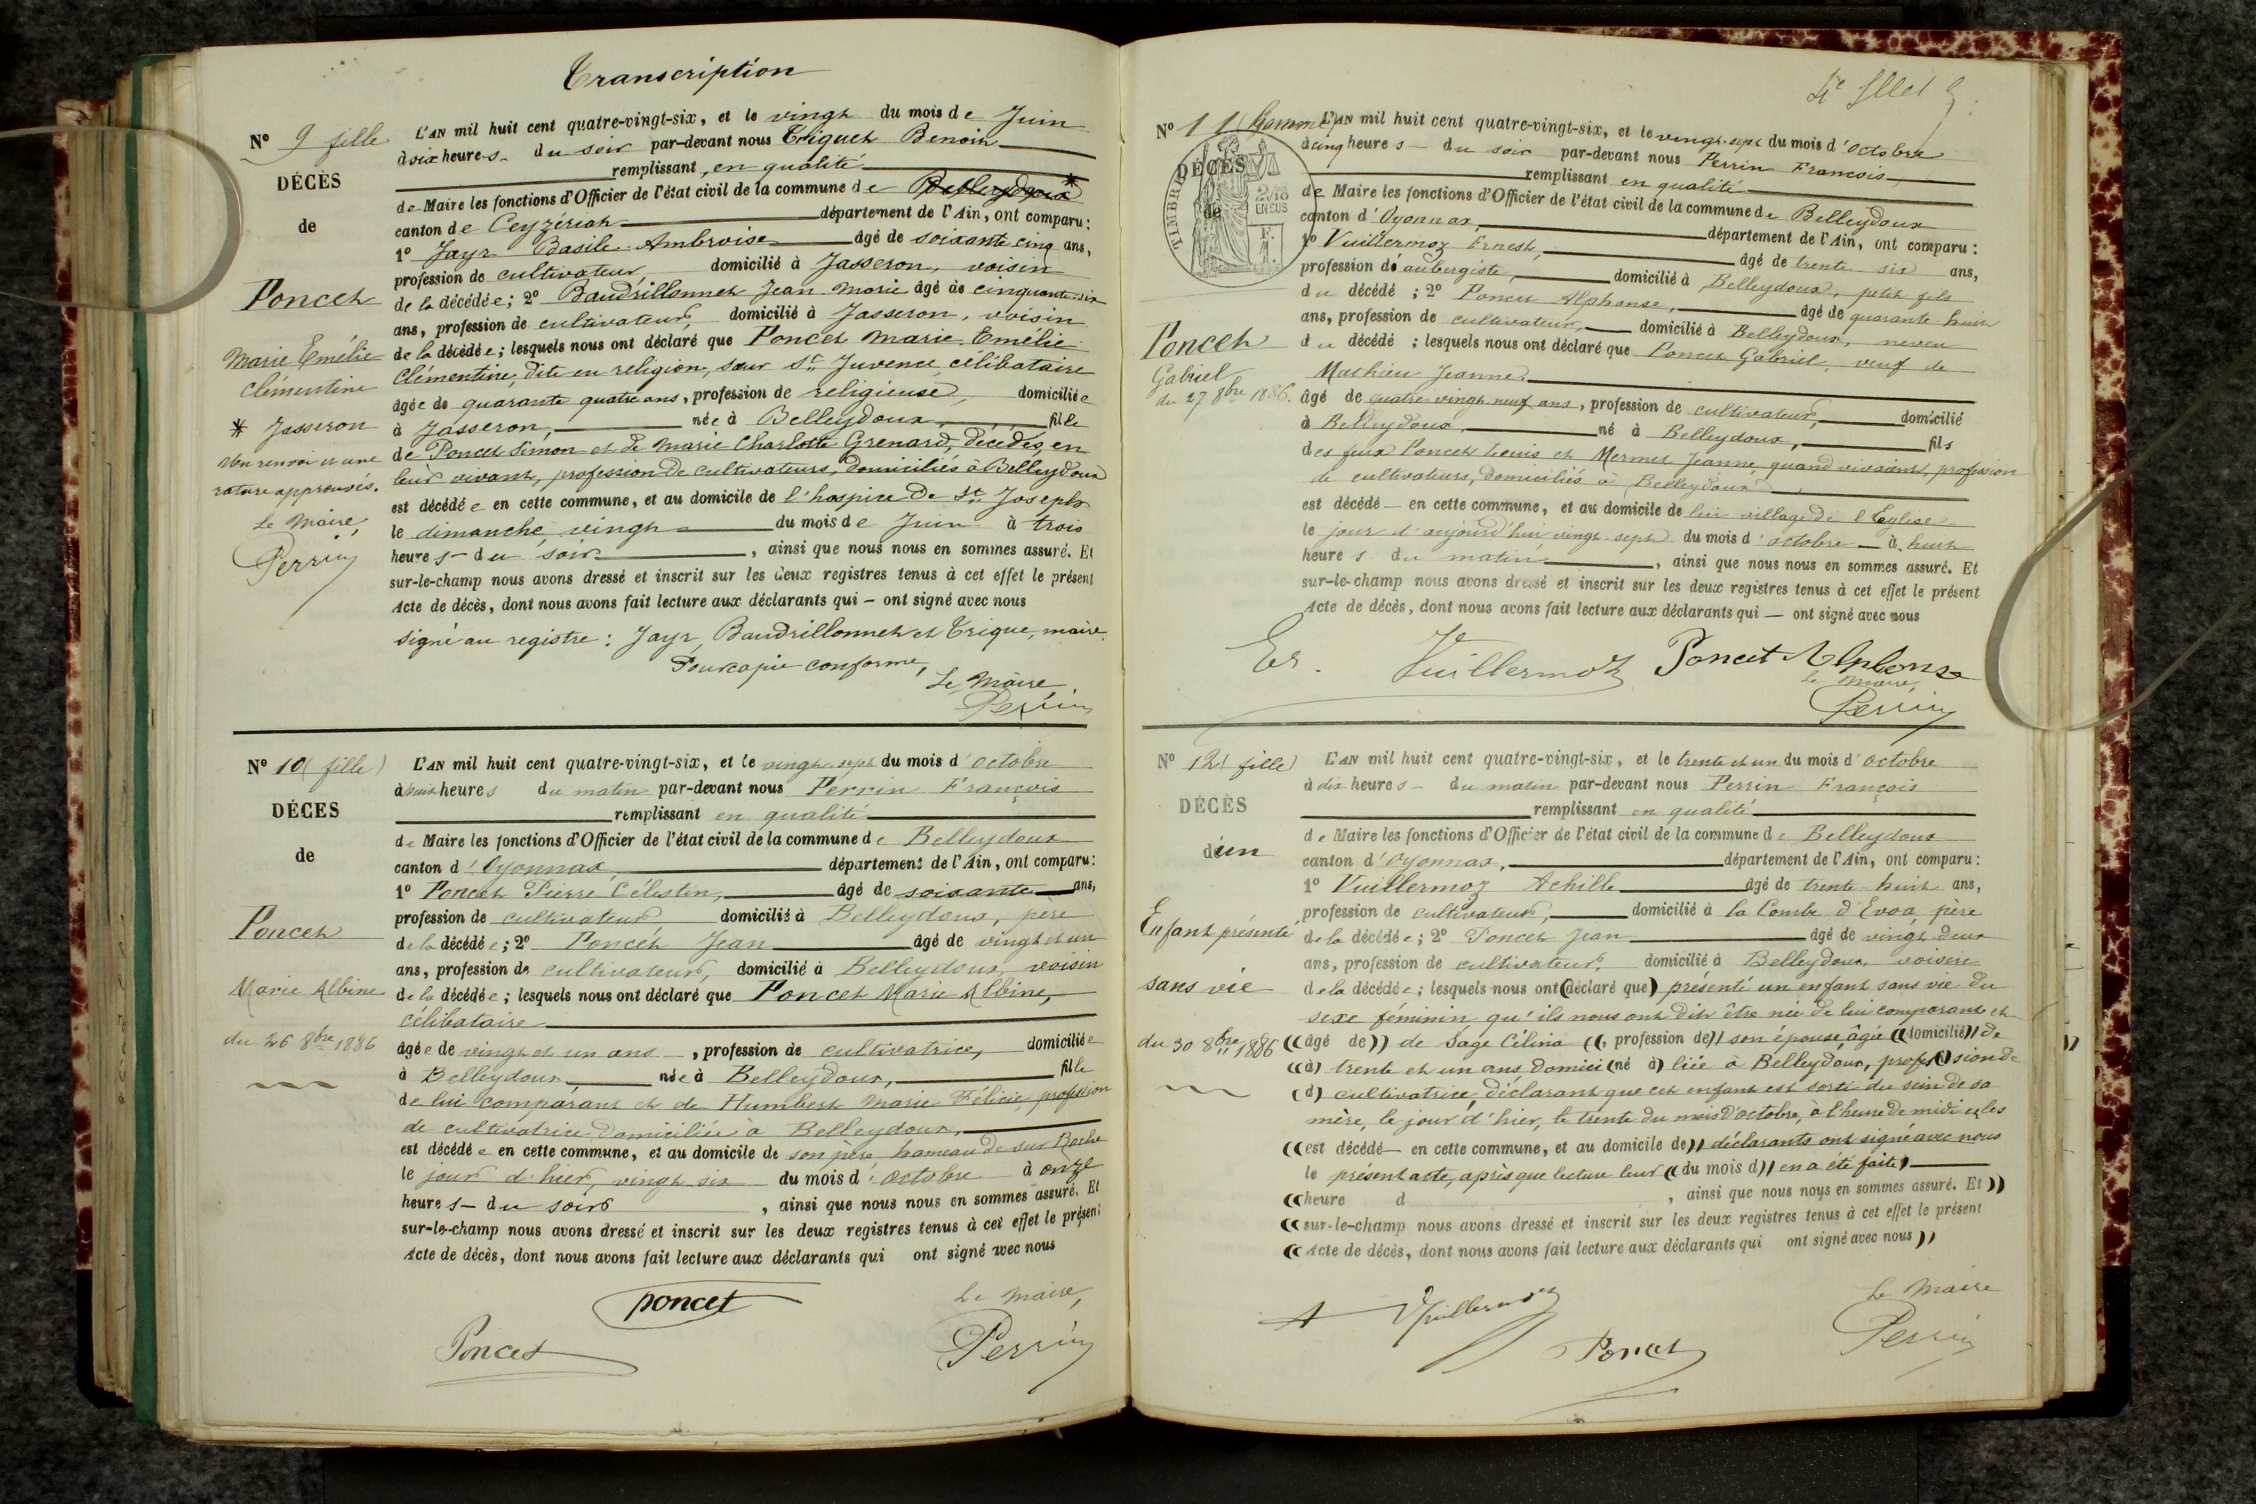 Transcription
N° 9 fille
DÉCÈS
de
Poncet
Marie Emélie
Clémentine
* Jasseron
Un renvoi et une
rature approuvés.
Le Maire,
Perrin
L'AN mil huit cent quatre-vingt-six, et le vingt du mois de Juin
à six heures du soir par-devant nous Triquet Benoin
remplissant, en qualité
de Maire les fonctions d'Officier de l'état civil de la commune de Belleydoux *
canton de Ceyzériat département de l'Ain, ont comparu:
1° Jayr Basile Ambroise âgé de soixante cinq ans,
profession de cultivateur, domicilié à Jasseron, voisin
de la décédée; 2° Baudrillonnet Jean Marie âgé de cinquante-six
ans, profession de cultivateur, domicilié à Jasseron, voisin
de la décédée; lesquels nous ont déclaré que Poncet Marie Emélie
Clémentine, dite en religion, sœur St Juvence célibataire
âgée de quarante quatre ans, profession de religieuse, domiciliée
à Jasseron, née à Belleydoux, fille
de Poncet Simon et de Marie Charlotte Grenard, décédés, en
leur vivant, profession de cultivateurs, domiciliés à Belleydoux
est décédée en cette commune, et au domicile de l'hospice de St Joseph
le dimanche vingt du mois de Juin à trois
heures du soir, ainsi que nous nous en sommes assuré. Et
sur-le-champ nous avons dressé et inscrit sur les deux registres tenus à cet effet le présent
Acte de décès, dont nous avons fait lecture aux déclarants qui – ont signé avec nous
signé au registre: Jayr, Baudrillonnet et Trique, maire.
Pour copie conforme,
Le Maire,
Perrin
N° 10 (fille)
DÉCES
de
Poncet
Marie Albine
du 26 8bre 1886
L'AN mil huit cent quatre-vingt-six, et le vingt-sept du mois d'octobre
à huit heures du matin par-devant nous Perrin François
remplissant en qualité
de Maire les fonctions d'Officier de l'état civil de la commune de Belleydoux
canton d'Oyonnax, département de l'Ain, ont comparu:
1° Poncet Pierre Célestin, âgé de soixante ans,
profession de cultivateur, domicilié à Belleydoux, père
de la décédée; 2° Poncet Jean âgé de vingt et un
ans, profession de cultivateur, domicilié à Belleydoux, voisin
de la décédée; lesquels nous ont déclaré que Poncet Marie Albine,
célibataire
âgée de vingt et un ans, profession de cultivatrice, domiciliée
à Belleydoux, née à Belleydoux, fille
de lui comparant et de Humbert Marie Félicie, profession
de cultivatrice domiciliée à Belleydoux,
est décédée en cette commune, et au domicile de son père hameau de sur Roche
le jour d'hier, vingt six du mois d'octobre à onze
heures du soir, ainsi que nous nous en sommes assuré. Et
sur-le-champ nous avons dressé et inscrit sur les deux registres tenus à cet effet le présent
Acte de décès, dont nous avons fait lecture aux déclarants qui ont signé avec nous
poncet
Le Maire,
Poncet
Perrin
N° 11 (homme)
DÉCÈS
de
TIMBRE
Poncet
Gabriel
du 27 8bre 1886.
L'AN mil huit cent quatre-vingt-six, et le vingt-sept du mois d'Octobre
à cinq heures du soir par-devant nous Perrin François,
remplissant en qualité
de Maire les fonctions d'Officier de l'état civil de la commune de Belleydoux
canton d'Oyonnax, département de l'Ain, ont comparu:
1° Vuillermoz Ernest, âgé de trente six ans,
profession d'aubergiste, domicilié à Belleydoux, petit fils
du décédé; 2° Poncet Alphonse, âgé de quarante huit
ans, profession de cultivateur, domicilié à Belleydoux, neveu
du décédé; lesquels nous ont déclaré que Poncet Gabriel, veuf de
Mathieu Jeanne,
âgé de quatre vingt neuf ans, profession de cultivateur, domicilié
à Belleydoux, né à Belleydoux, fils
des feux Poncet Louis et Mermet Jeanne, quand vivaient, profession
de cultivateurs, domiciliés à Belleydoux,
est décédé en cette commune, et au domicile de lui village de l'Eglise
le jour d'aujourd'hui vingt-sept du mois d'octobre à huit
heures du matin, ainsi que nous nous en sommes assuré. Et
sur-le-champ nous avons dressé et inscrit sur les deux registres tenus à cet effet le présent
Acte de décès, dont nous avons fait lecture aux déclarants qui — ont signé avec nous
Er. Vuillermoz Poncet Alphonse
Le Maire,
Perrin
N° 12 (fille)
DÉCÈS
d'un
Enfant présenté
sans vie
du 30 8bre 1886
L'AN mil huit cent quatre-vingt-six, et le trente et un du mois d'octobre
à dix heures du matin par-devant nous Perrin François
remplissant en qualité
de Maire les fonctions d'Officier de l'état civil de la commune de Belleydoux
canton d'Oyonnax, département de l'Ain, ont comparu:
1° Vuillermoz Achille âgé de trente huit ans,
profession de cultivateur, domicilié à la Combe d'Evoa, père
de la décédée; 2° Poncet Jean âgé de vingt deux
ans, profession de cultivateur, domicilié à Belleydoux, voisin
de la décédée; lesquels nous ont (déclaré que) présenté un enfant sans vie du
sexe féminin qu'ils nous ont dit être née de lui comparant et
((âgé de)) de Sage Célina ((, profession de)) son épouse âgée ((domicilié)) de
((à) trente et un ans domici (né à) liée à Belleydoux, profession de
(d) cultivatrice, déclarant que cet enfant est sorti du sein de sa
mère, le jour d'hier, le trente du mois d'octobre, à l'heure de midi et les
((est décédé en cette commune, et au domicile de)) déclarants ont signé avec nous
le présent acte, après que lecture leur ((du mois d)) en a été faite
((heure d , ainsi que nous nous en sommes assuré. Et))
((sur-le-champ nous avons dressé et inscrit sur les deux registres tenus à cet effet le présent
((Acte de décès, dont nous avons fait lecture aux déclarants qui ont signé avec nous))
A Vuillermoz
Le Maire
Poncet
Perrin